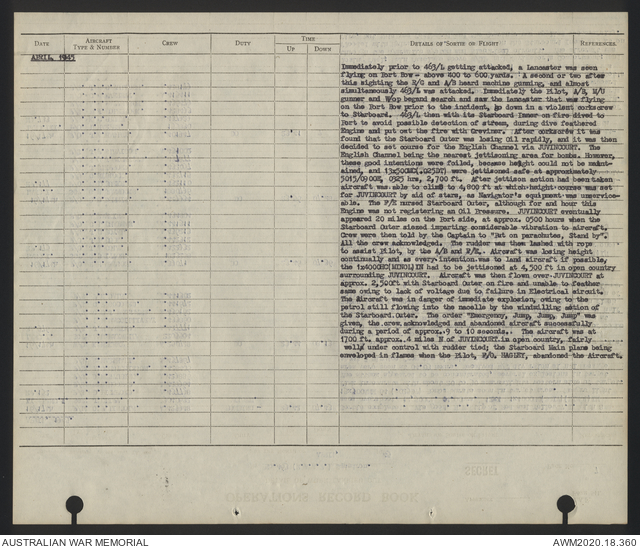 DATE AIRCRAFT TYPE & NUMBER CREW DUTY TIME UP DOWN DETAILS OF SORTIE OR FLIGHT REFERENCES.
APRIL 1945
Immediately prior to 463/L getting attacked, a Lancaster was seen
flying on Port Bow - above 400 to 600 yards. A second or two after
this sighting the R/G and A/B heard machine gunning, and almost
simultaneously 463/L was attacked. Immediately the Pilot, A/B, M/U
gunner and W/op begand search and saw the Lancaster that was flying
on the Port Bow prior to the incident, go down in a violent corkscrew
to Starboard. 463/L then with its Starboard Inner on fire dived to
Port to avoid possible detection of stream, during dive feathered
Engine and put out the fire with Graviner. After corkscrew it was
found that the Starboard Outer was losing Oil rapidly, and it was then
decided to set course for the English Channel via JUVINCOURT. The
English Channel being the nearest jettisoning area for bombs. However,
these good intentions were foiled, because height could not be maint-
ained, and were jettisoned safe at approximately
hrs, 2,700 ft. After jettison action had been taken
aircraft was able to climb to 4,800 ft at which height course was set
for JUVINCOURT by aid of stars, as Navigator's equipment was unservice-
able. The F/E nursed Starboard Outer, although for and hour this
Engine was not registering an Oil Pressure. JUVINCOURT eventually
appeared 20 miles on the Port side, at approx. 0500 hours when the
Starboard Outer siezed imparting considerable vibration to aircraft.
Crew were then told by the Captain to "Put on parachutes, Stand by".
All the crew acknowledged. The rudder was then lashed with rope
to assist Pilot, by the A/B and F/E. Aircraft was losing height
continually and as every intention was to land aircraft if possible,
the had to be jettisoned at 4,500 ft in open country
surrounding JUVINCOURT. Aircraft was then flown over JUVINCOURT at
approx. 2,500ft with Starboard Outer on fire and unable to feather
same owing to lack of voltage due to failure in Electrical circuit.
The Aircraft was in danger of immediate explosion, owing to the
petrol still flowing into the nacelle by the windmilling action of
the Starboard Outer. The order "Emergency, Jump, Jump, Jump" was
given, the crew acknowledged and abandoned aircraft successfully
during a period of approx. 9 to 10 seconds. The aircraft was at
1700 ft. approx. 4 miles N of JUVINCOURT in open country, fairly
well under control with rudder tied; the Starboard Main plane being
enveloped in flames when the Pilot, F/O. HAGLEY, abandoned the Aircraft.
AUSTRALIAN WAR MEMORIAL AWM2020.18.360